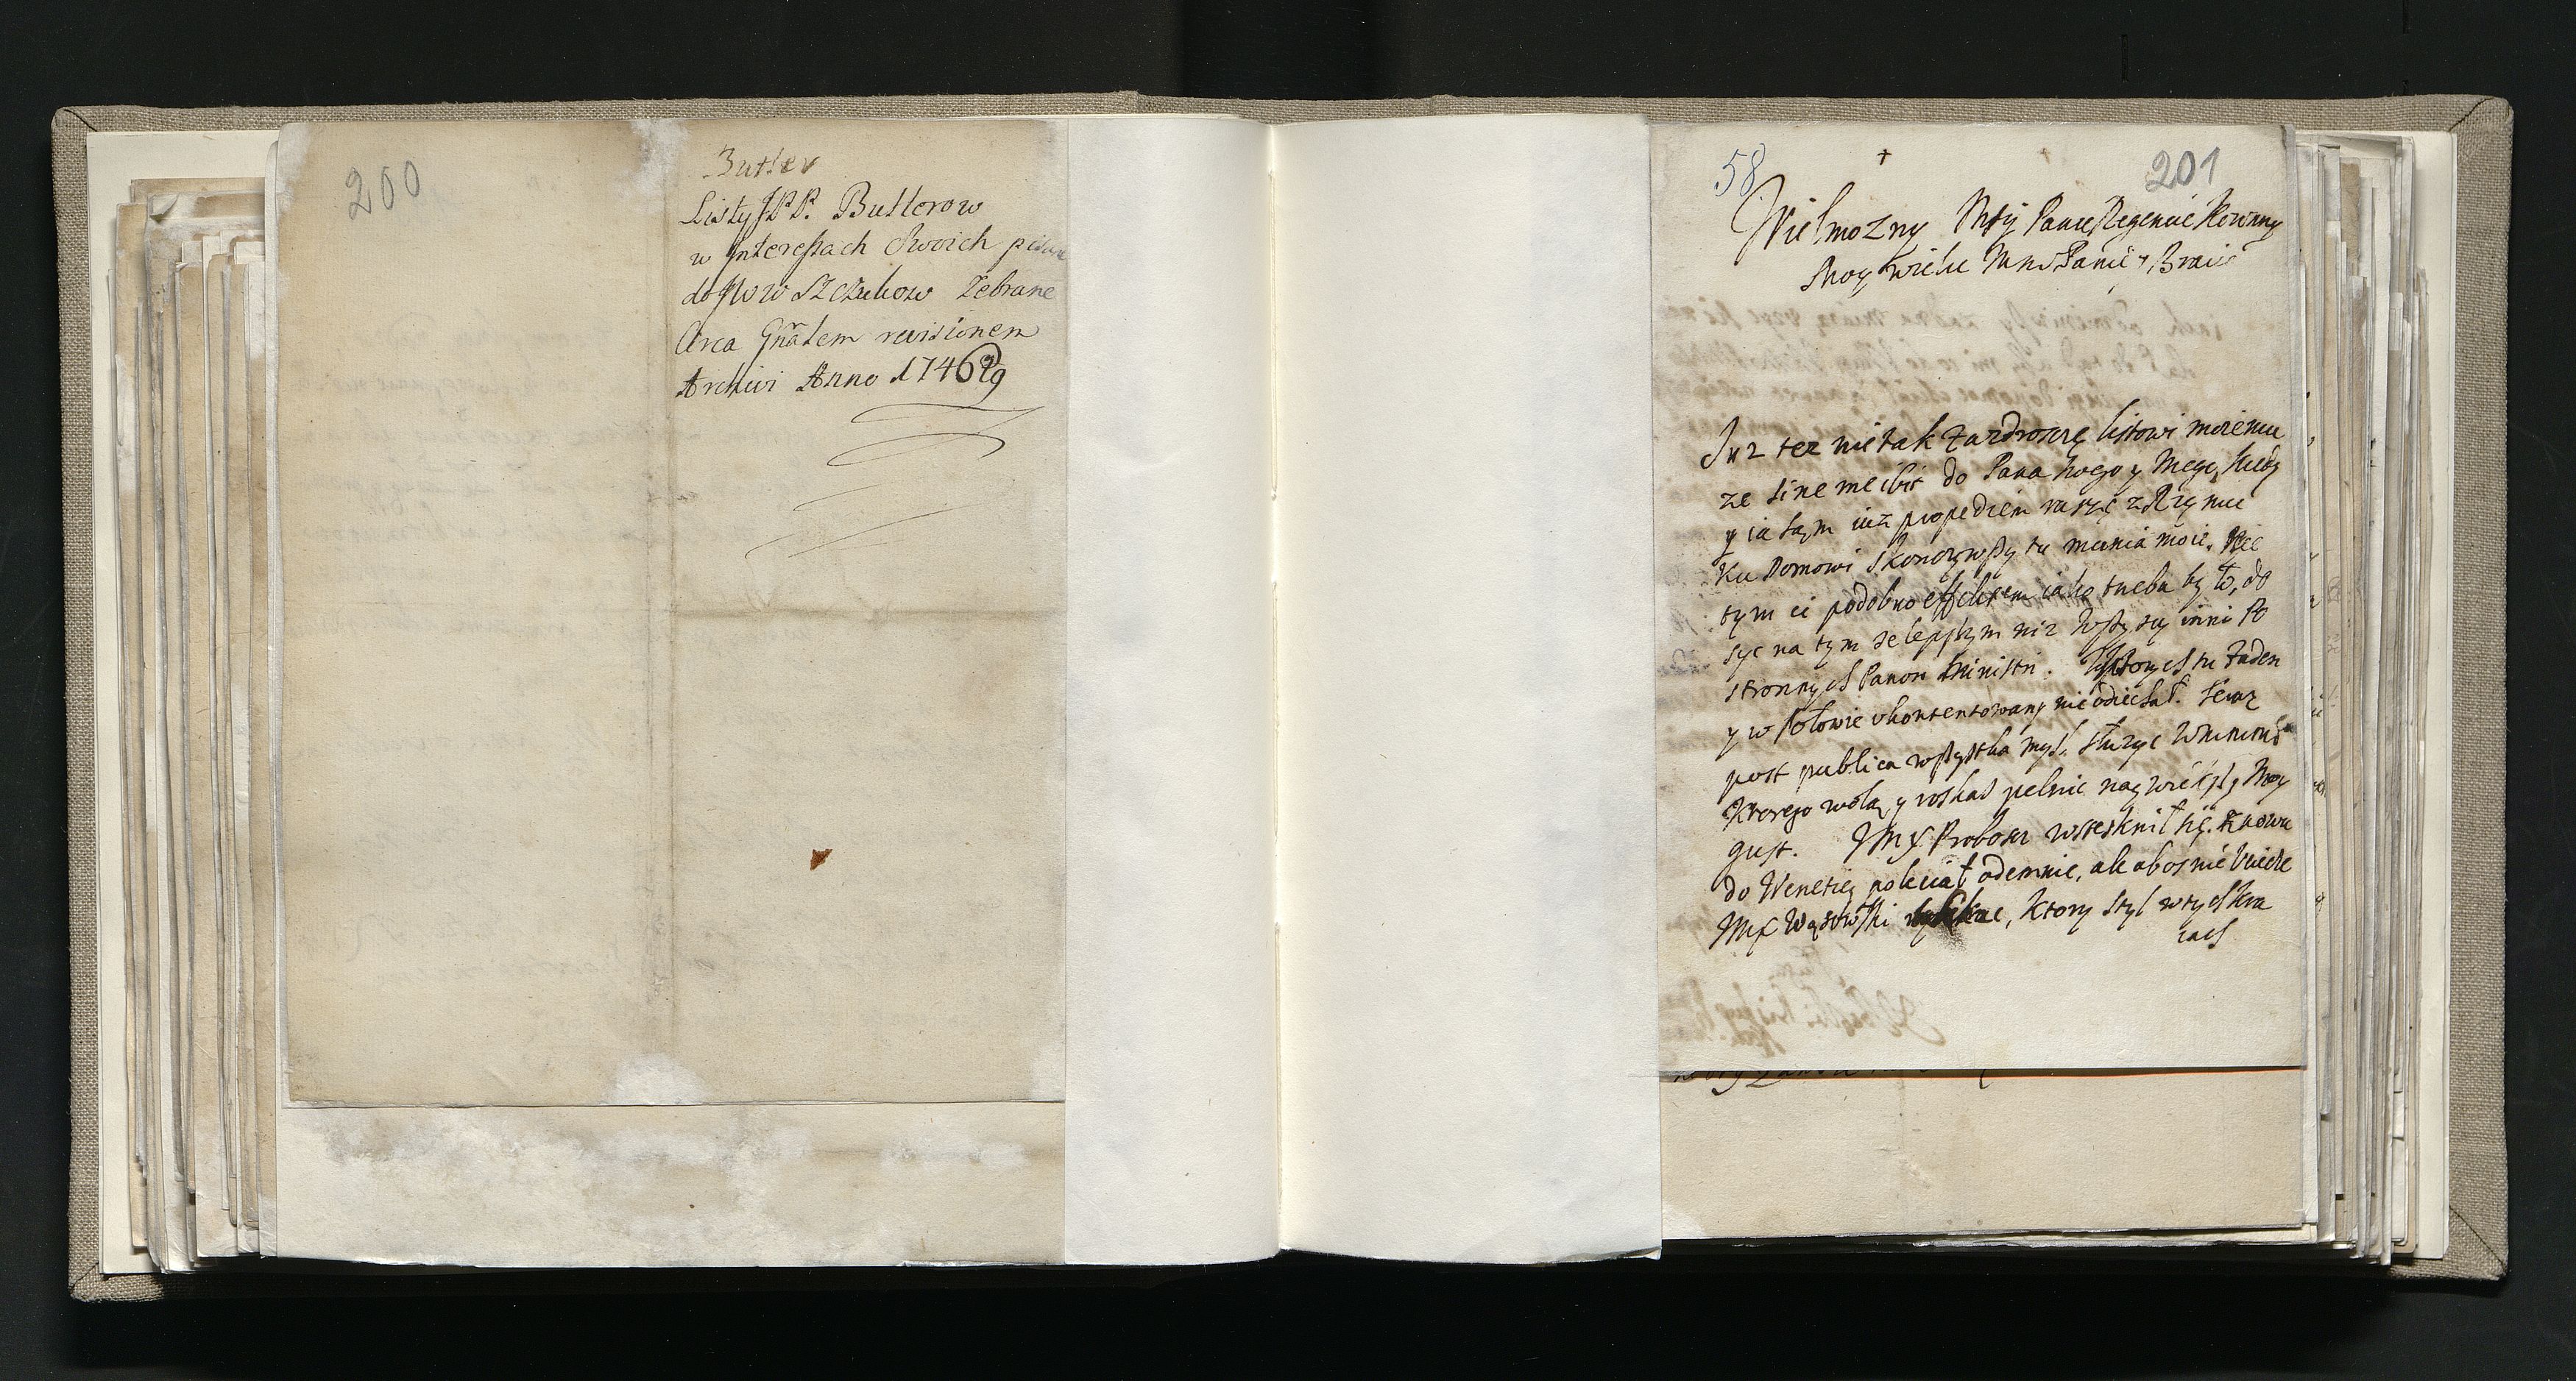 200
Butler
Listy JPP. Butlerow
w Interessach Swoich pisane
do JWW Szczukow Zebrane
Circa Gñalem revisionem
Archivi Anno 1746
58
201
Wielmozny Mſy Panie Regencie Koronny
Moy wielce Panie y Bracie
Iuz tez nie tak zazdroszcę listowi moiemu
ze do Pana twego y Mego, kiedy
y ia sam iuż propediem ruszę z Rzymu
Ku Domowi skonczywszy tu munia moie. Nie
tym ci podobno effektem iako trzeba było, do
syc na tym ze lepszym niz wszyscy inni Po
stronnych Panow Ministri. Ktorych tu zaden
y w połowie ukontentowany nie odiechał. teraz
post publica wszystka mysl służyc
Ktorego wolą y roskas pelnic naywiększy Moy
gust. JmX Proboszcz wstesknił się. Znowu
do Wenetiey poleciał odemnie, ale
JmX Wąsowski, ktory styl w tych kra
iach